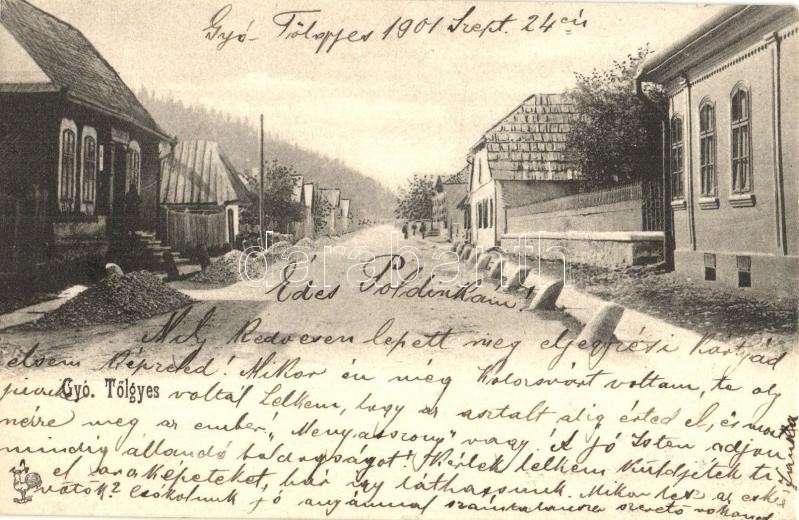 Gyó-Tölgyes 1901 Szept. 24 én
darabanth.com
Édes Poldinkám!
Mily kedvesen lepett meg eljegyzési kártyád
képreled! Mikor én még Kolozsvárt voltam, te oly
Gyó. Tőlgyes
voltál lelkem, hogy az asztalt alig érted el, és most
néire meg az ember „Menyasszony" vagy. A jó Isten adjon
mindig állandó boldogságot! Kérlek lelkem küldjetek ti
el képeteket, bár így láthassunk. Mikor lesz az eskü-
vőtök? Csókolnak jó anyámmal szerető rokonod